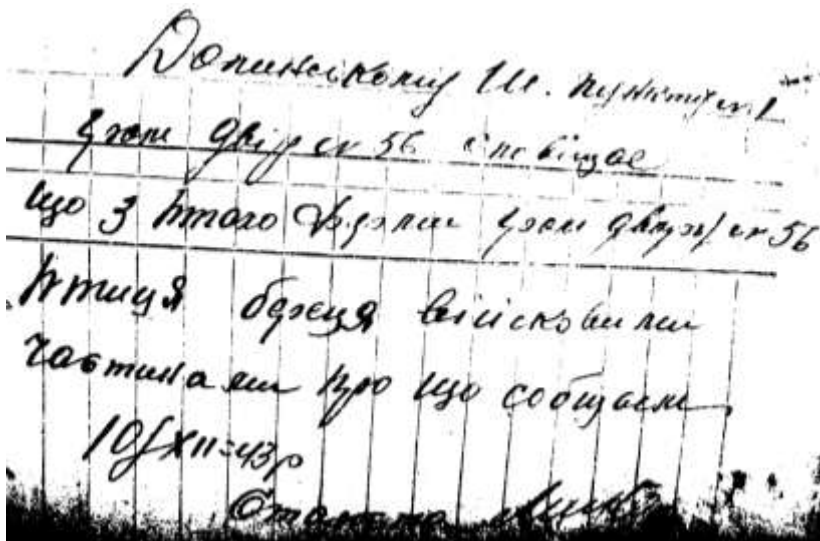 Долинському Ш. пункту ск 1
двір ск 56 сповіщає
що з птаго двір ск 56
птиця береця військовими
частинами про що собщаем
10/XII=43р